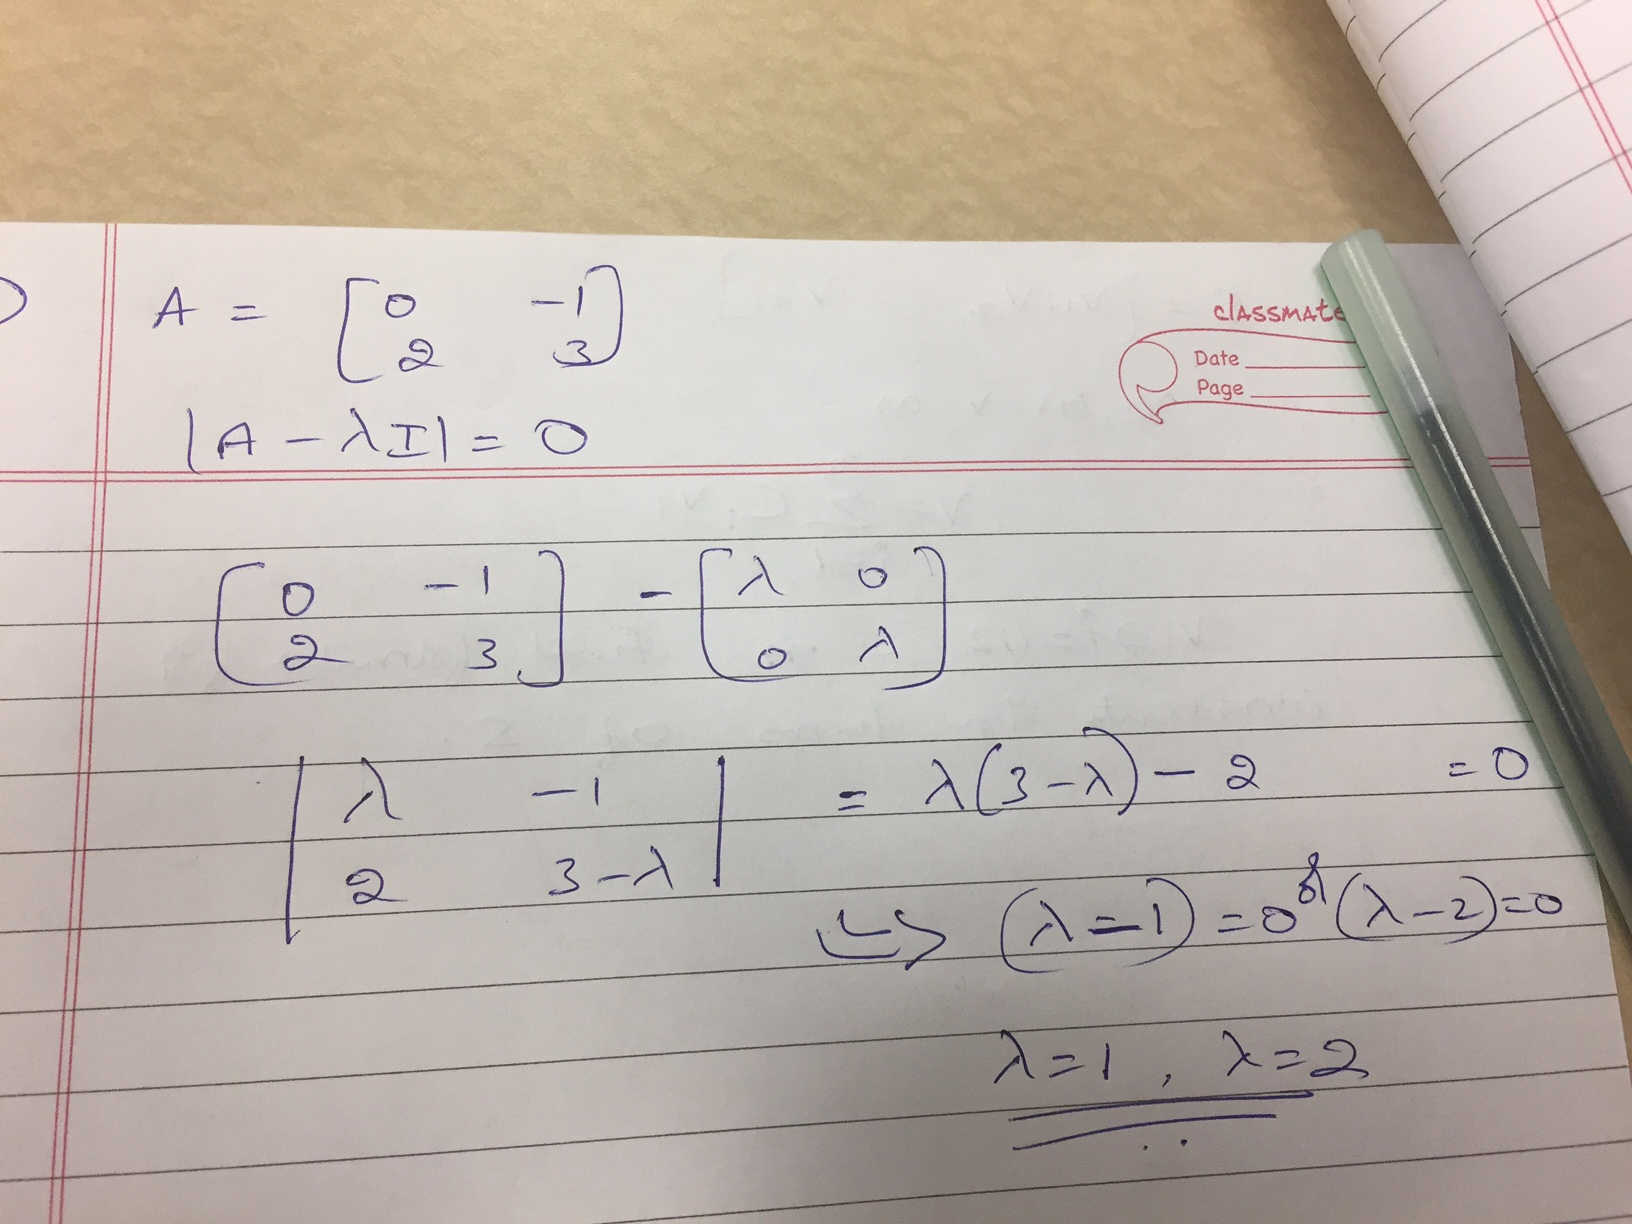 classmate
Date
Page
A = [0 -1
2 3]
|A - λI| = 0
[0 -1
2 3] - [λ 0
0 λ]
|λ -1
2 3-λ| = λ(3-λ) - 2 = 0
↳ (λ=1) = 0 & (λ-2)=0
λ=1, λ=2